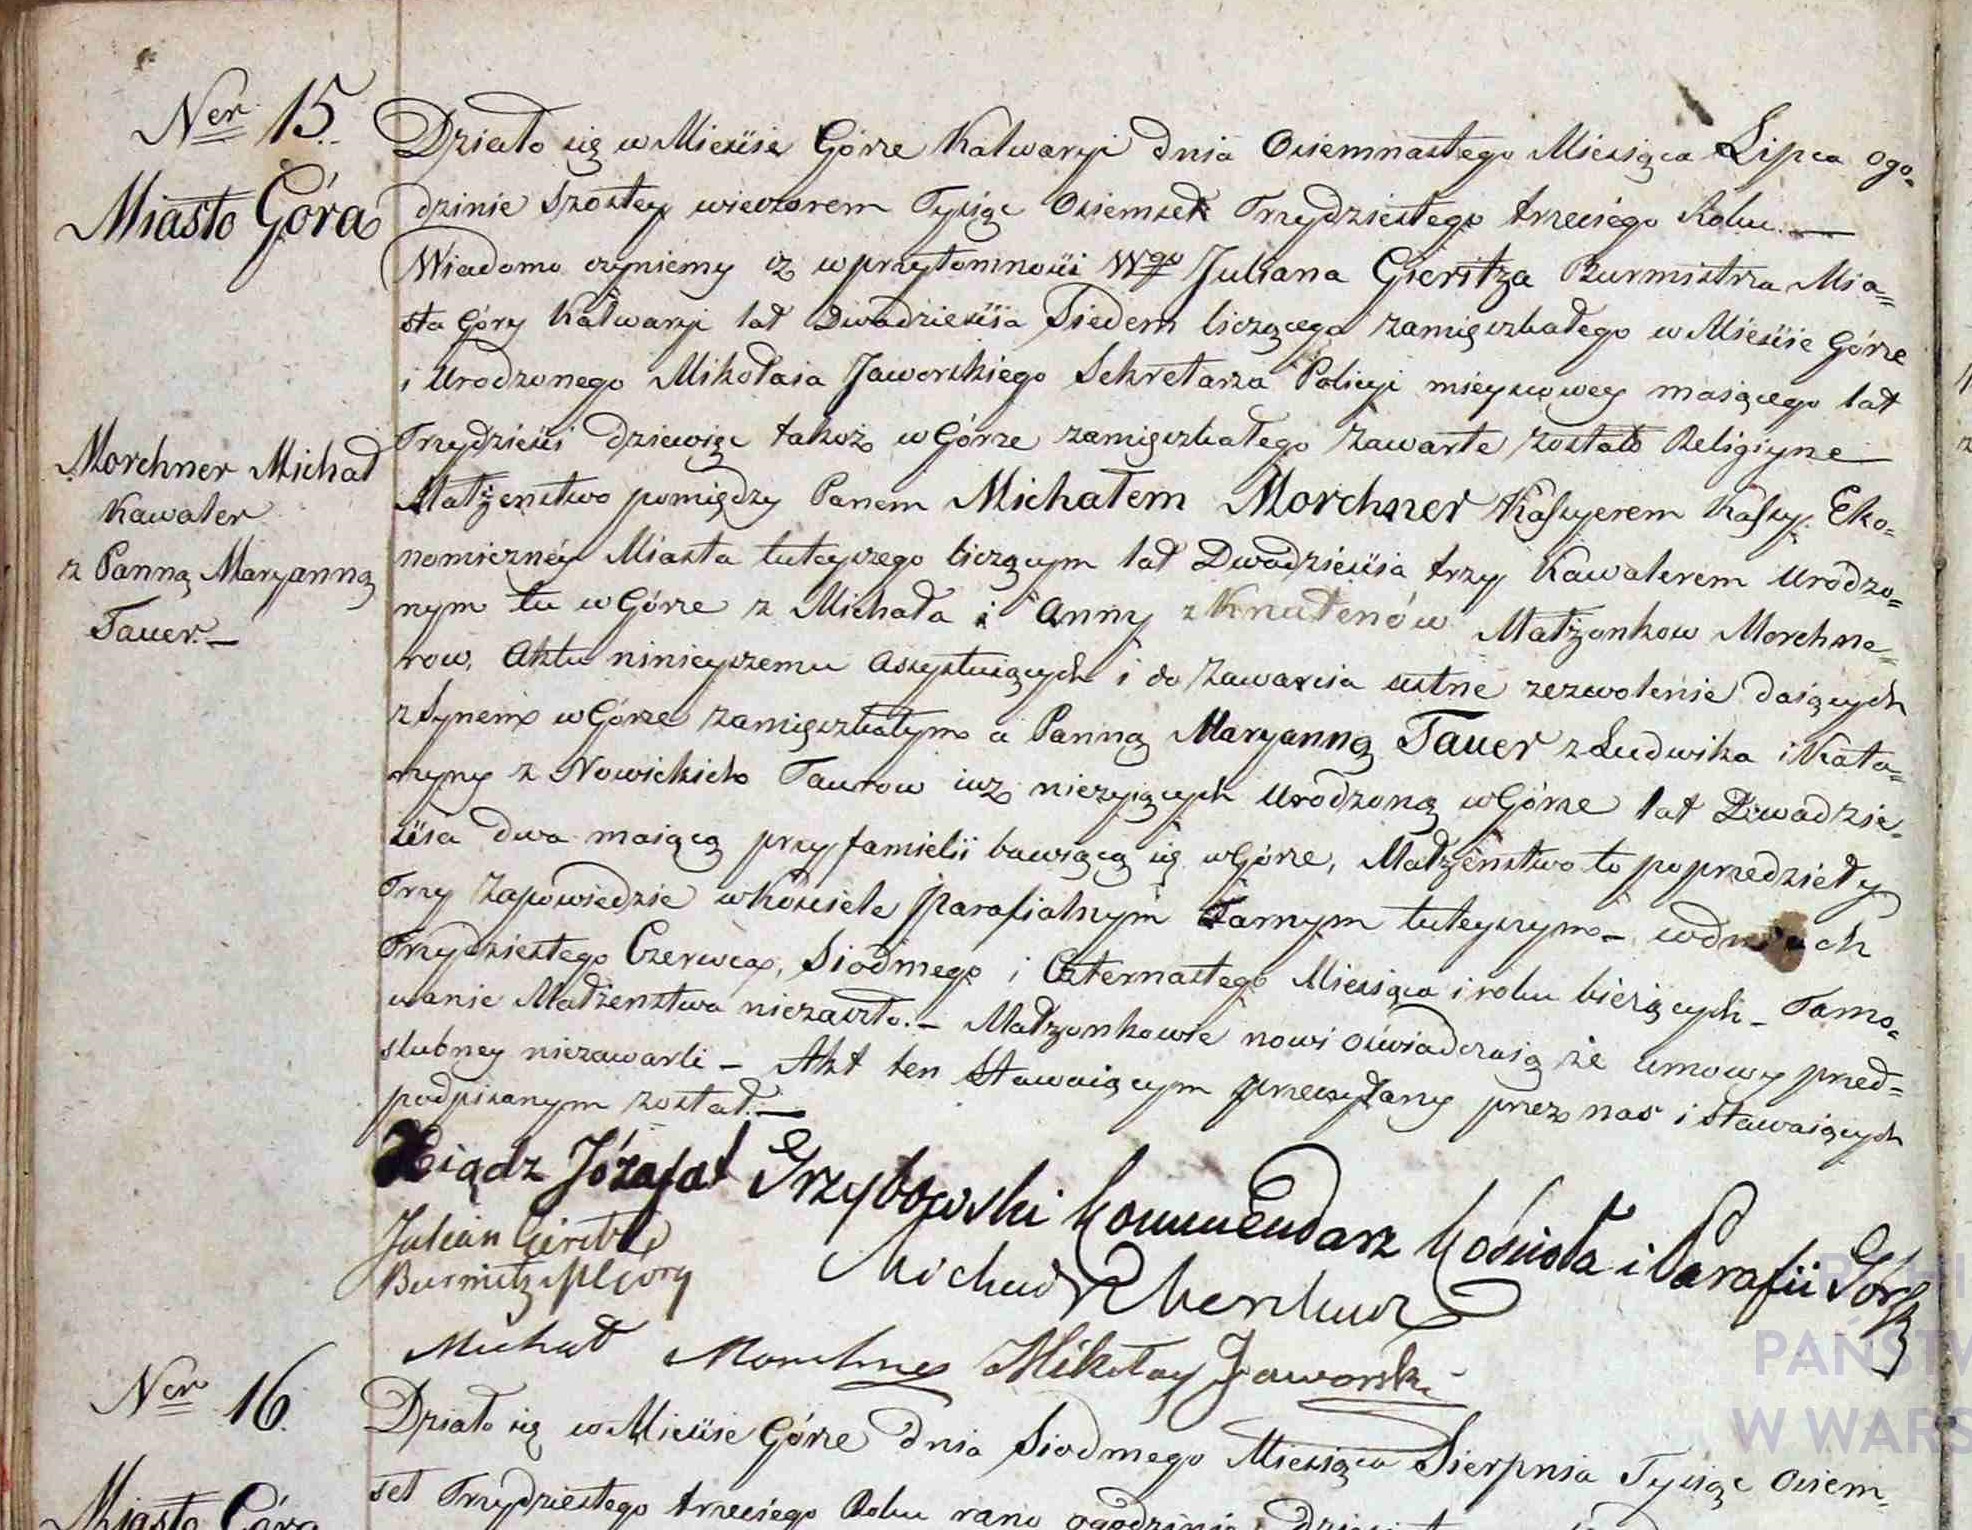 Ner 15.
Miasto Góra
Morchner Michał
Kawaler
z Panną Maryanną
Tauer. —
Działo się w Mieście Górze Kalwaryi dnia Osiemnastego Miesiąca Lipca ogo-
dzinie Szostey wieczorem Tysiąc Osiemset Trzydziestego trzeciego Roku. —
Wiadomo czyniemy iż wprzytomności Wgo Juliana Gieritza Burmistrza Mia=
sta Góry Kalwaryi lat Dwadzieścia Siedem liczącego zamięszkałego w Mieście Górze
i Urodzonego Mikołaia Jaworskiego Sekretarza Policyi mieyscowey maiącego lat
Trzydzieści dziewięc takoż w Górze zamięszkałego zawarte zostało Religiyne
Małżenstwo pomiędzy Panem Michałem Morchner Kassyerem Kassy Eko=
nomiczney Miasta tuteyszego liczącym lat Dwadzieścia trzy Kawalerem Urodzo=
nym tu w Górze z Michała i Anny z Knutenów Małżonkow Morchne=
row, Aktu ninieyszemu Assystuiących i do Zawarcia ustne zezwolenie daiących
z Synem w Górze zamięszkałym a Panną Maryanną Tauer z Ludwika i Kata=
rzyny z Nowickich Taurow iuż nieżyiących Urodzoną w Górze lat Dwadzie=
ścia dwa maiącą przy familii bawiącą się w Górze, Małżeństwo to poprzedziły
Trzy Zapowiedzie w Kościele Parafialnym Farnym tuteyszym — w dniach
Trzydziestego Czerwca, Siodmego i Czternastego Miesiąca i roku bieżących — Tamo=
wanie Małżenstwa niezaszło. — Małżonkowie nowi oświadczaią że umowy przed=
slubney niezawarli — Akt ten Stawaiącym przeczytany przez nas i Stawaiących
podpisanym został. —
Xiądz Józafat Grzybowski Kommendarz Kościoła i Parafii Góry
Julian Gieritz
Burmistrz M Góry
Michał
Michał Morchner Mikołay Jaworski
Ner 16.
Miasto Góra
Działo się w Mieście Górze dnia Siodmego Miesiąca Sierpnia Tysiąc Osiem=
set Trzydziestego trzeciego Roku rano ogodzinie
PAŃSTW
W WARS